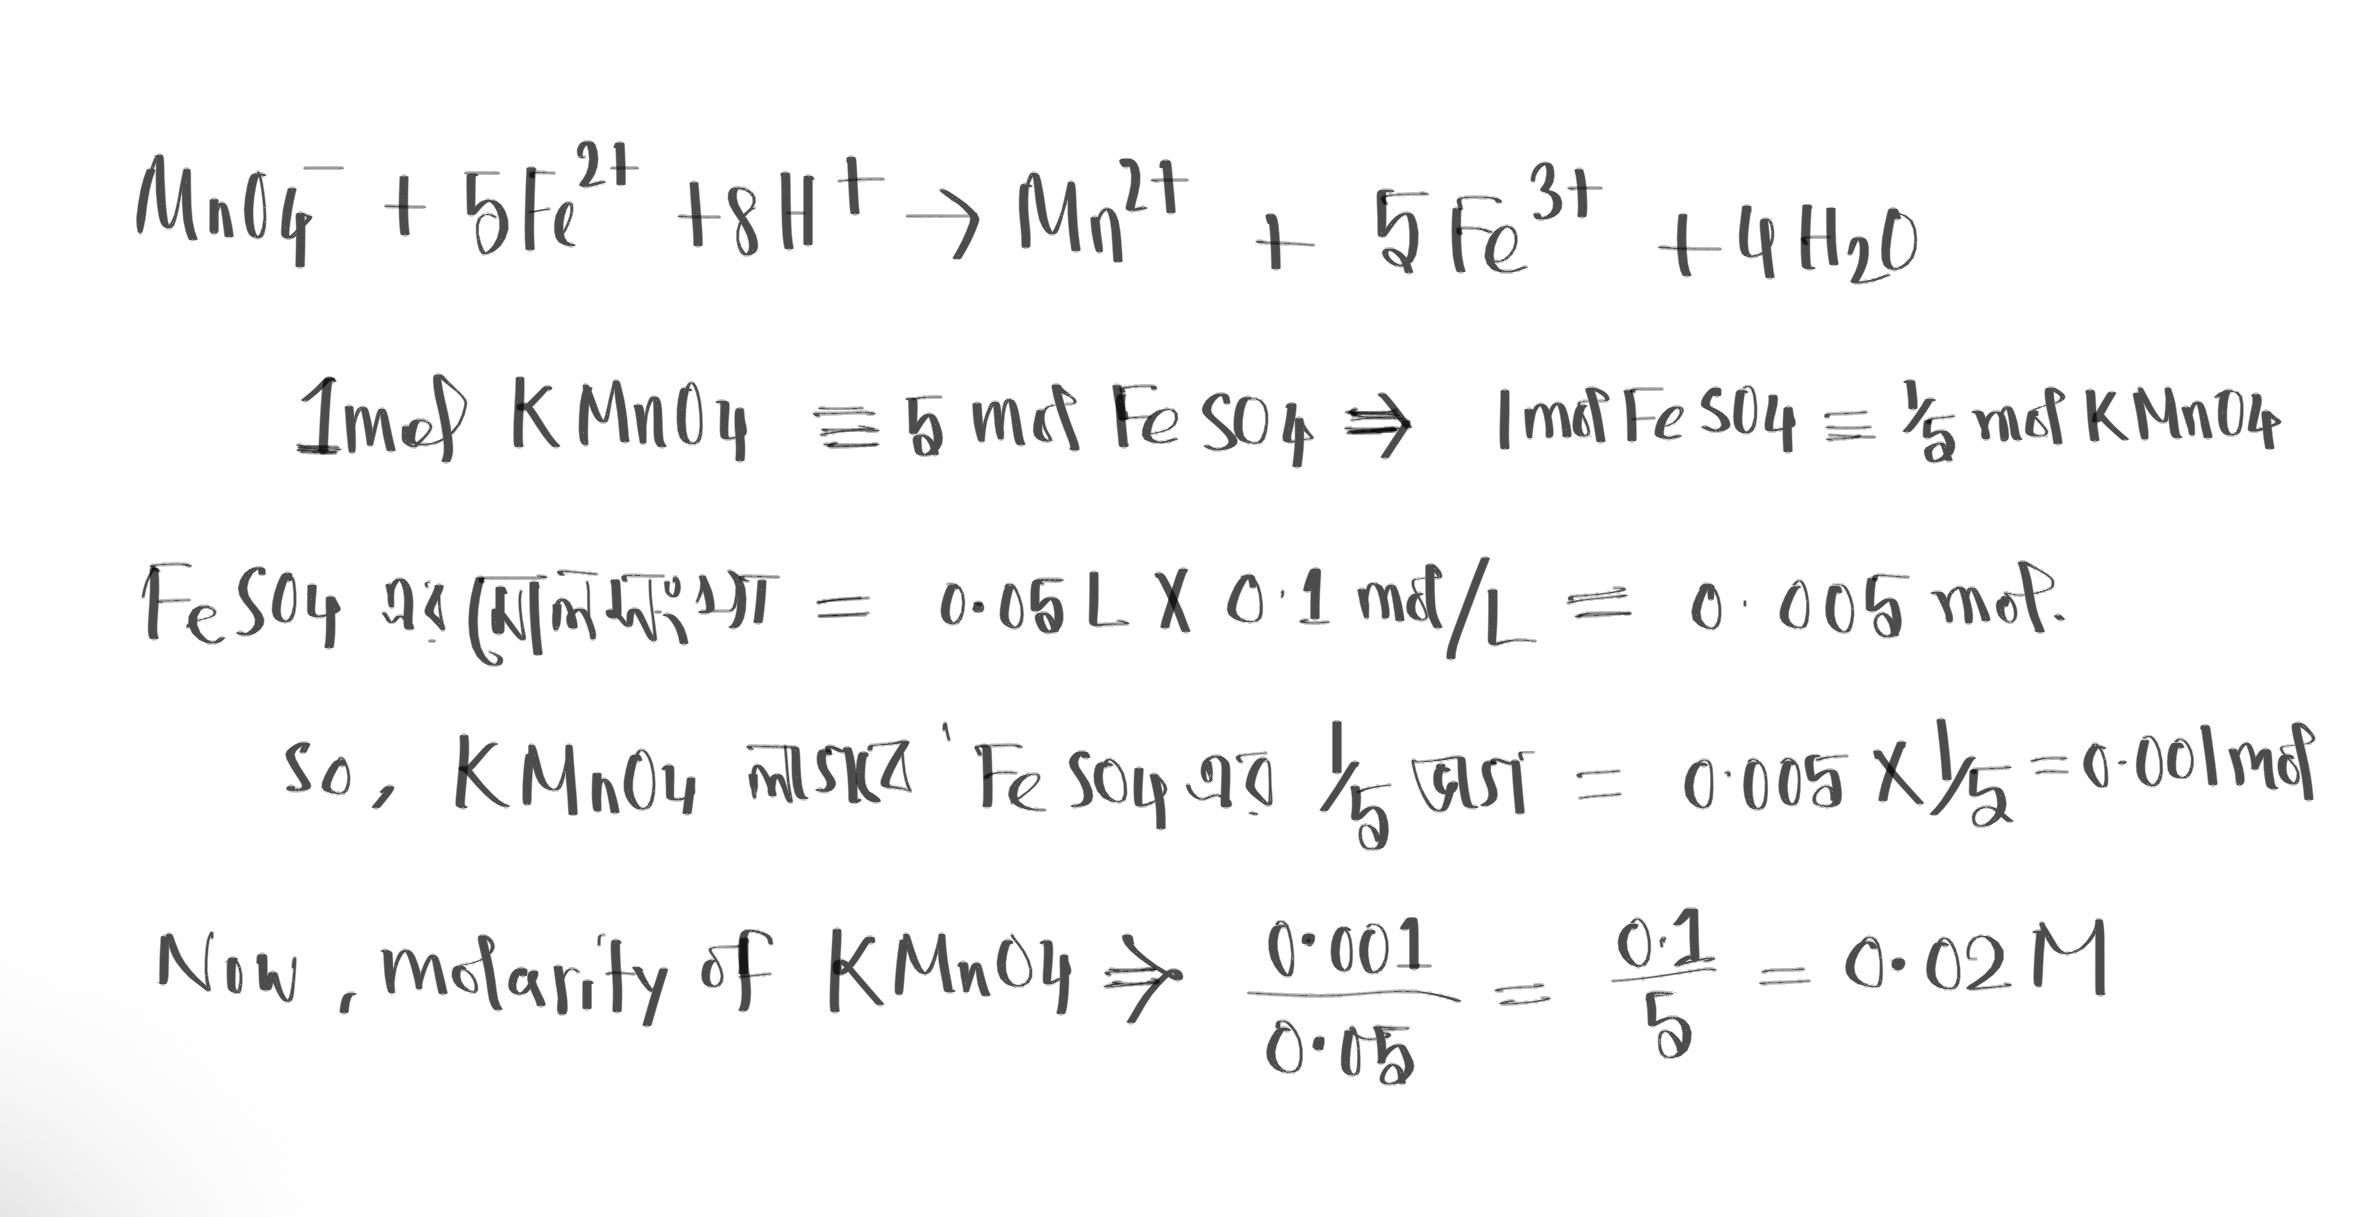 MnO4⁻ + 5Fe²⁺ + 8H⁺ → Mn²⁺ + 5Fe³⁺ + 4H2O
1mol KMnO4 ≡ 5 mol FeSO4 ⇒ 1mol FeSO4 ≡ 1/5 mol KMnO4
FeSO4 এর মোলসংখ্যা = 0.05 L X 0.1 mol/L = 0.005 mol.
so, KMnO4 লাগবে FeSO4 এর 1/5 ভাগ = 0.005 X 1/5 = 0.001 mol
Now, molarity of KMnO4 ⇒ 0.001/0.05 = 0.1/5 = 0.02 M